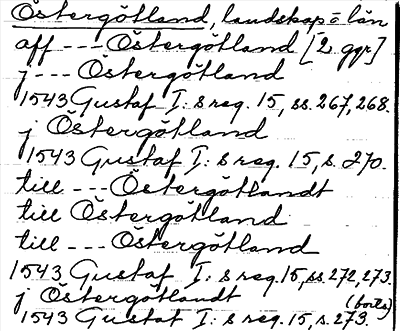 Östergötland, landskap o län
aff --- Östergötland [2 ggr]
j --- Östergötland
1543 Gustaf I:s reg. 15, ss. 267, 268.
j Östergötland
1543 Gustaf I:s reg. 15, s. 270.
till --- Östergötlandt
till Östergötland
till --- Östergötland
1543 Gustaf I:s reg. 15, ss. 272, 273.
j Östergötlandt (forts)
1543 Gustaf I:s reg. 15, s. 273.